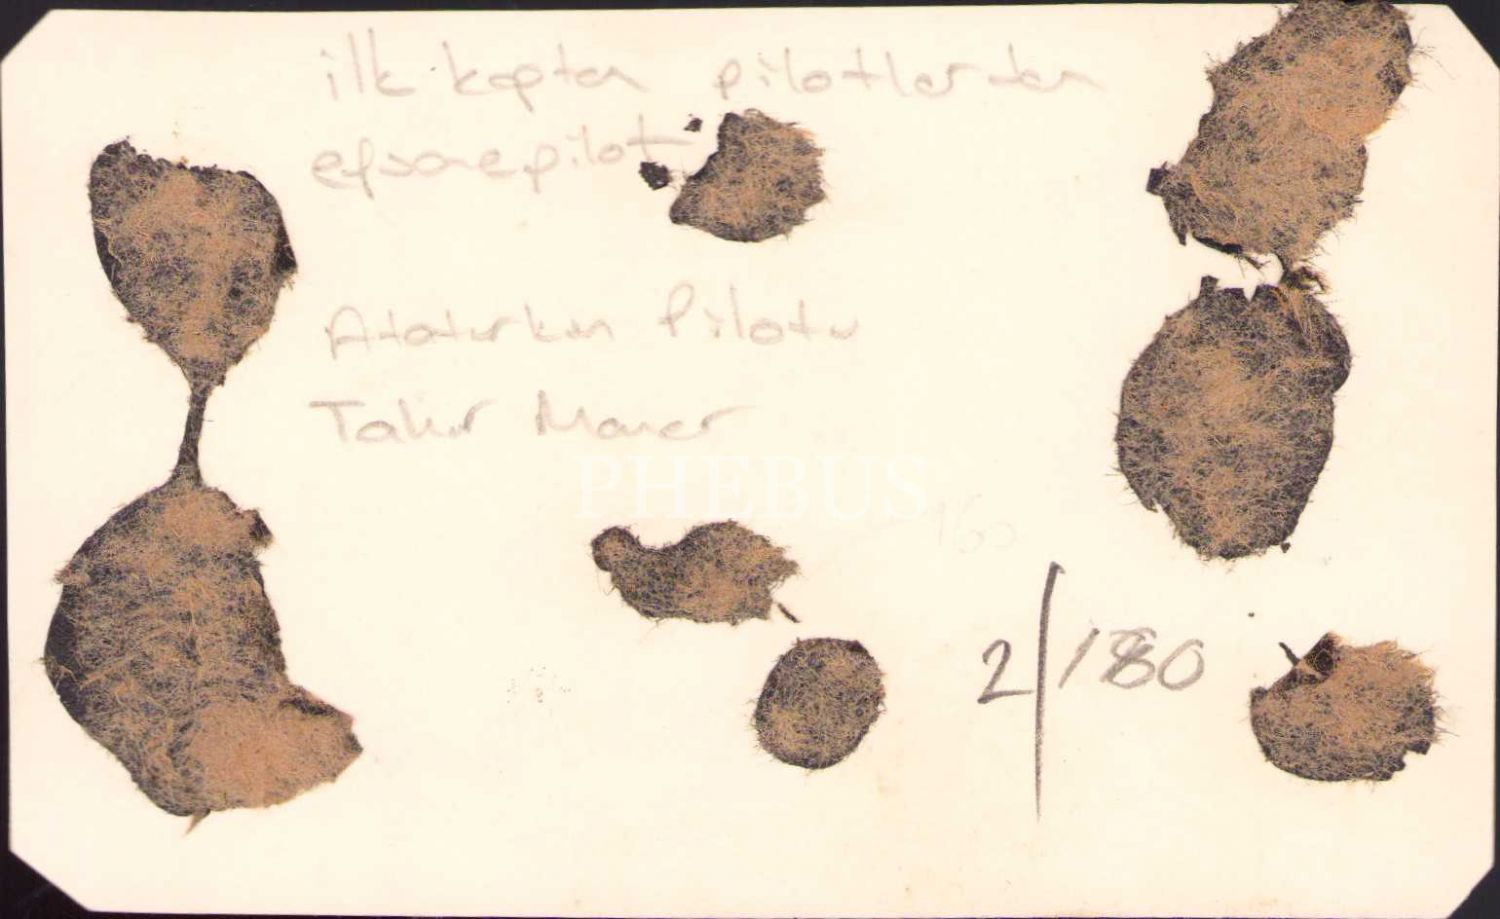 ilk kaptan pilotlardan
efsane pilot
Atatürkün Pilotu
Tahir Maner
PHEBUS
160
2/180